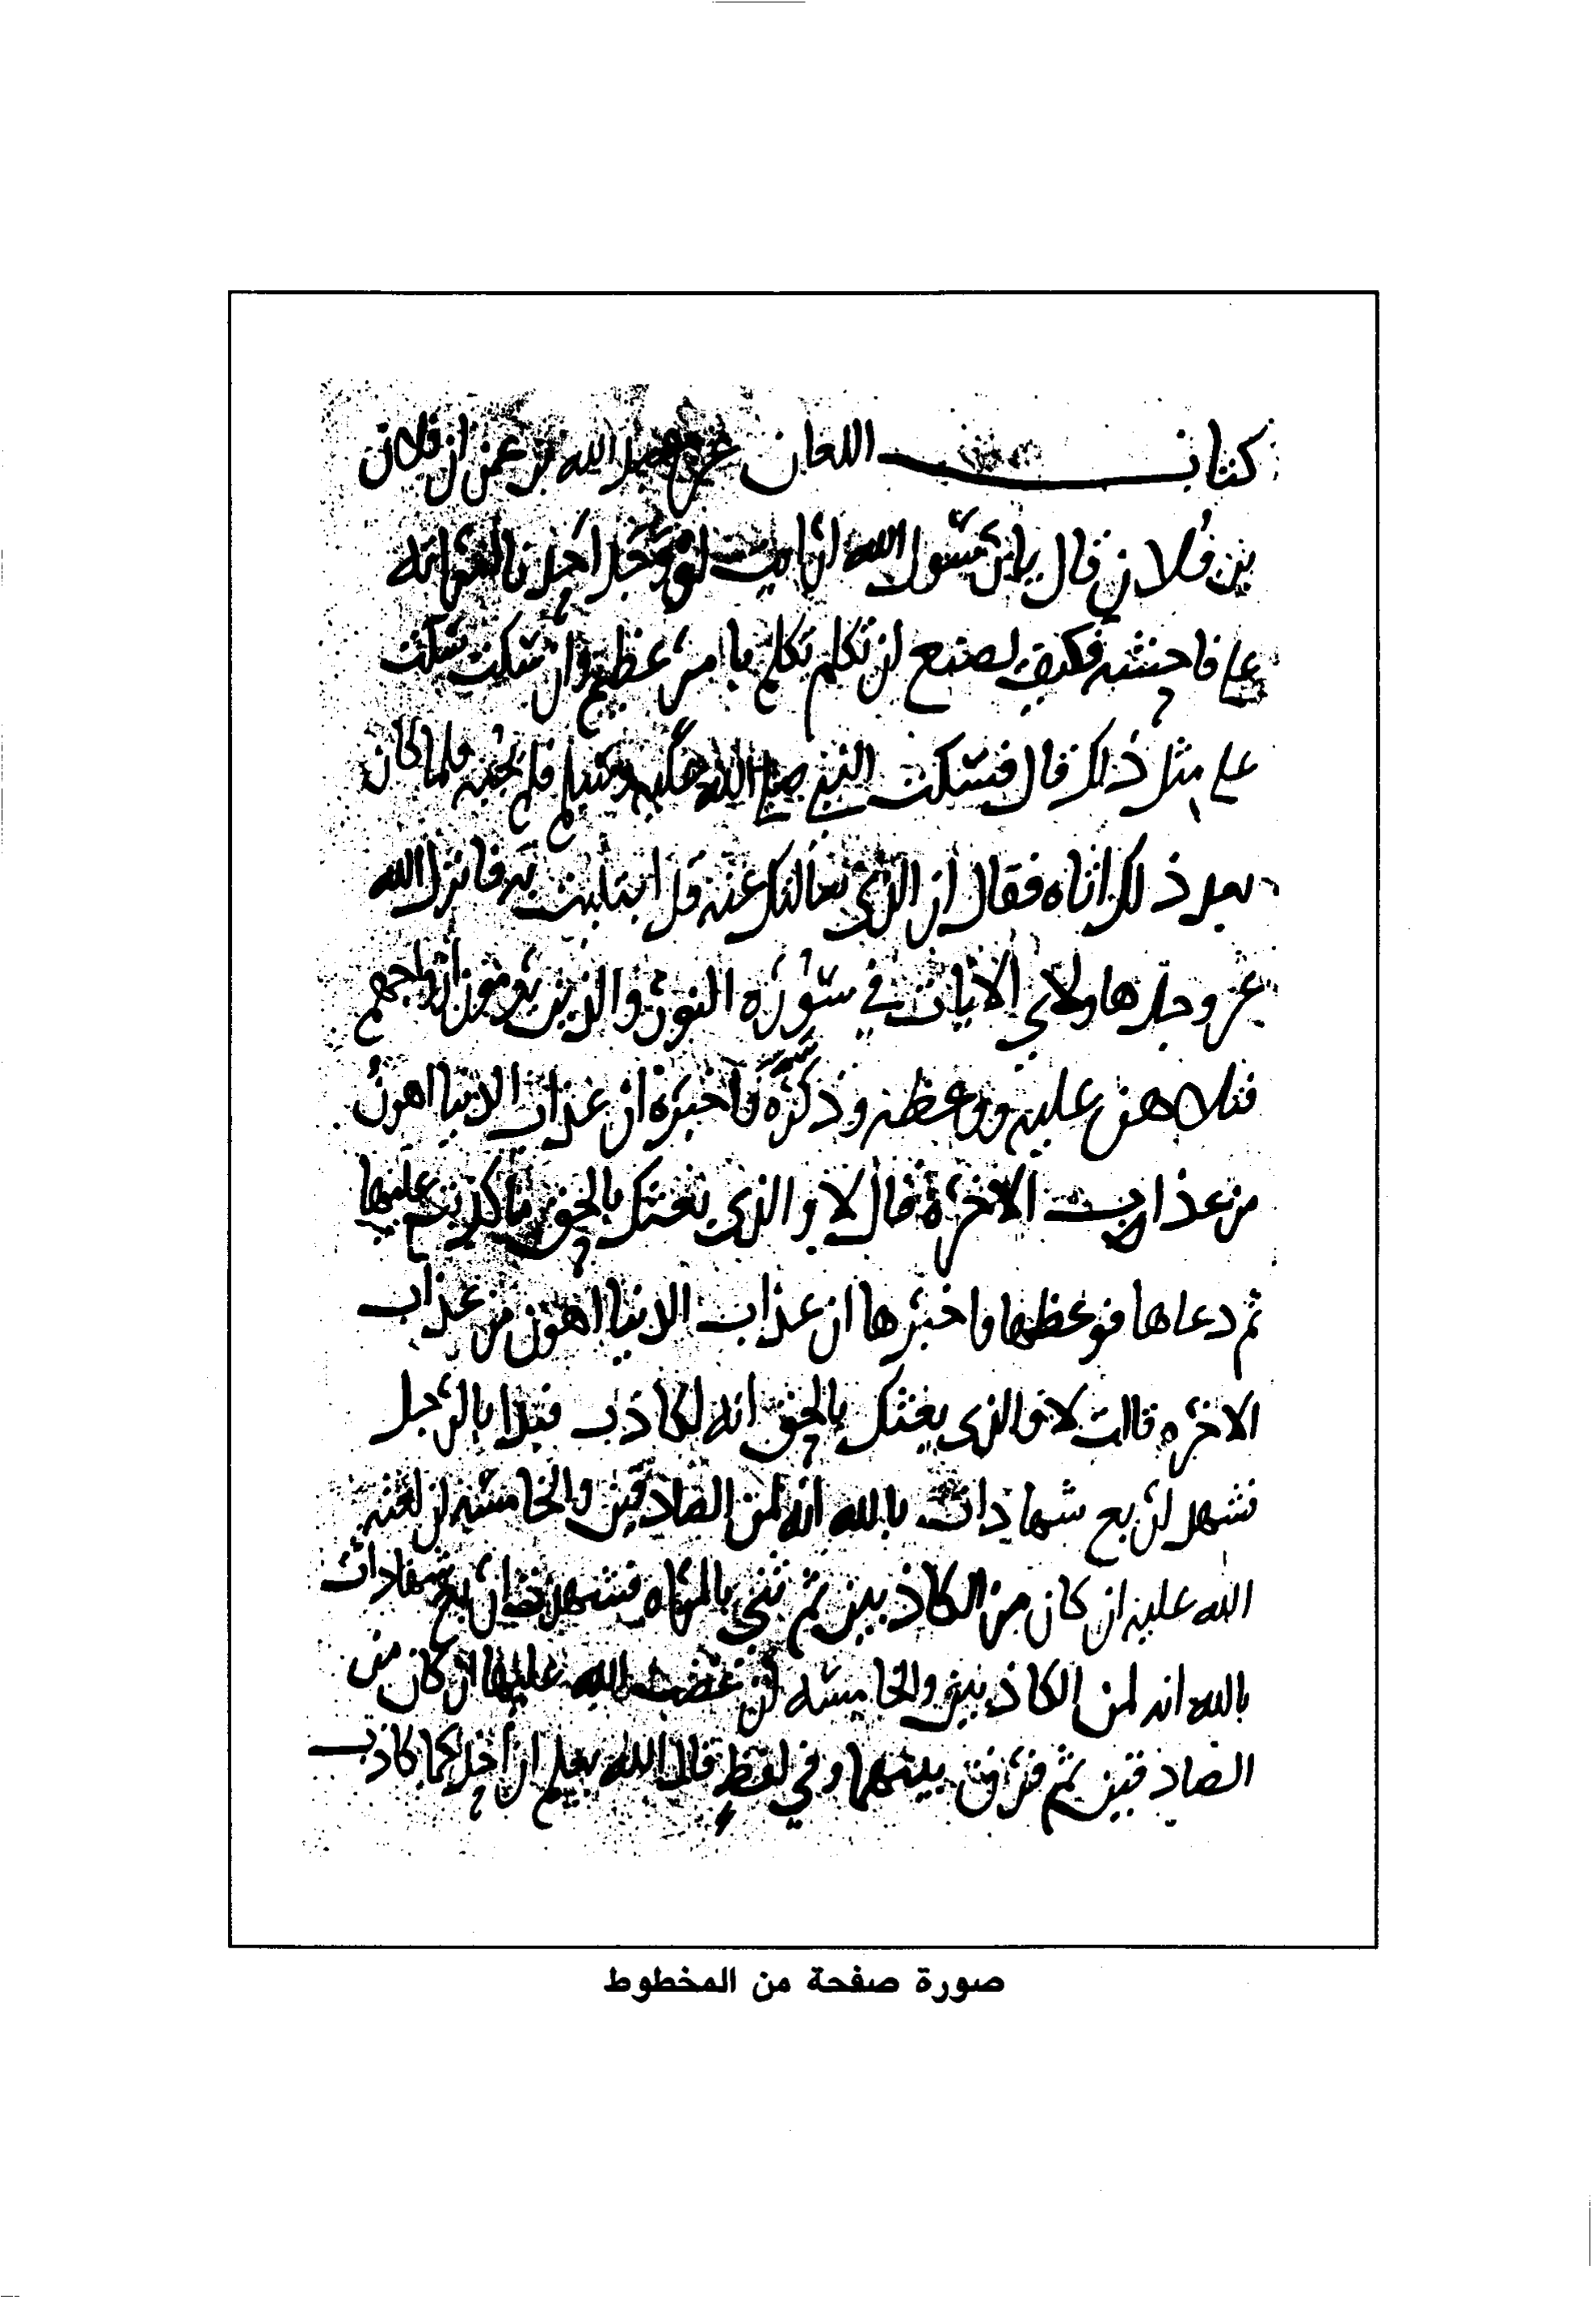 كتاب اللعان عن عبد الله بن عمر ان فلان
بن فلان قال يا رسول الله ارايت لو وجد احدنا امراته
على فاحشه فكيف يصنع ان تكلم تكلم بامر عظيم وان سكت سكت
على مثل ذلك قال فسكت النبي صلى الله عليه وسلم فلم يجبه فلما كان
بعد ذلك اتاه فقال ان الذي سالتك عنه قد ابتليت به فانزل الله
عز وجل هاولاي الايات في سوره النور والذين يرمون ازواجهم
فتلاهن عليه ووعظه وذكره واخبره ان عذاب الدنيا اهون
من عذاب الاخرة قال لا والذي بعثك بالحق ما كذبت عليها
ثم دعاها فوعظها واخبرها ان عذاب الدنيا اهون من عذاب
الاخره قالت لا والذي بعثك بالحق انه لكاذب فبدا بالرجل
فشهد اربع شهادات بالله انه لمن الصادقين والخامسه ان لعنه
الله عليه ان كان من الكاذبين ثم ثنى بالمراه فشهدت اربع شهادات
بالله انه لمن الكاذبين والخامسه ان غضب الله عليها ان كان من
الصادقين ثم فرق بينهما وفي لفظ قال الله يعلم ان احدكما كاذب
صورة صفحة من المخطوط